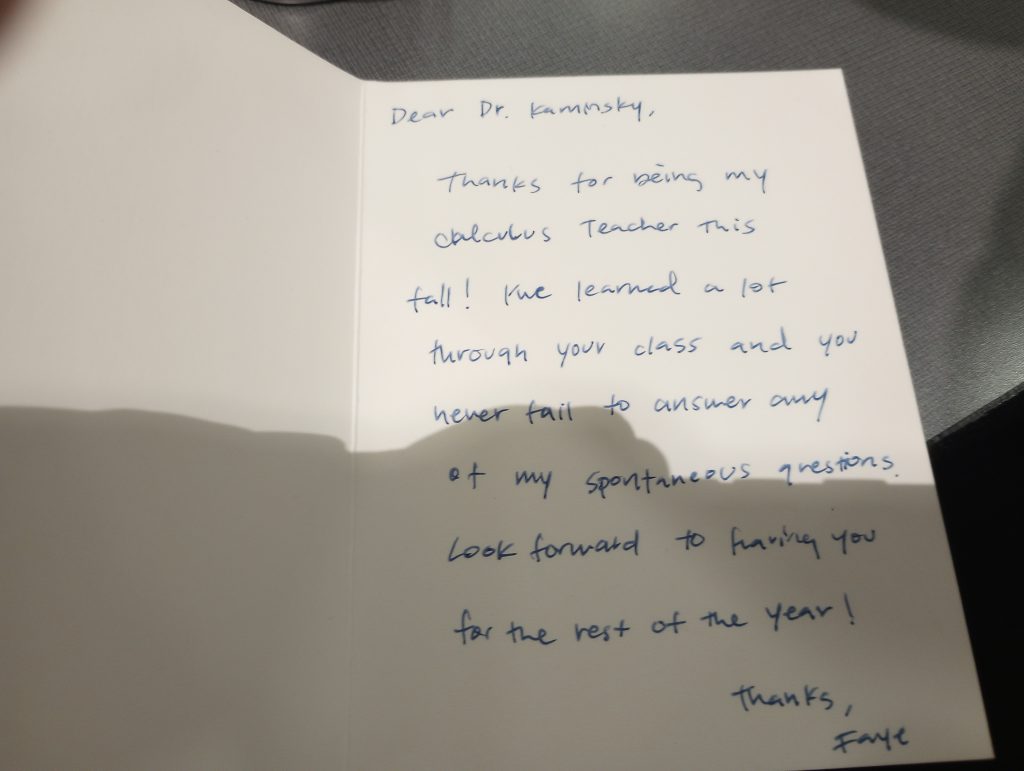 Dear Dr. Kaminsky,
Thanks for being my
calculus Teacher This
fall! I've learned a lot
through your class and you
never fail to answer any
of my spontaneous questions.
Look forward to having you
for the rest of the year!
Thanks,
Faye